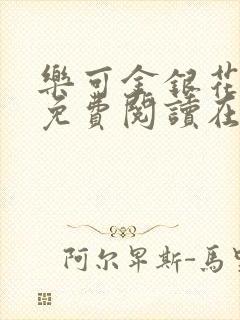 樂可金銀花
免費閱讀在
阿尔卑斯-馬